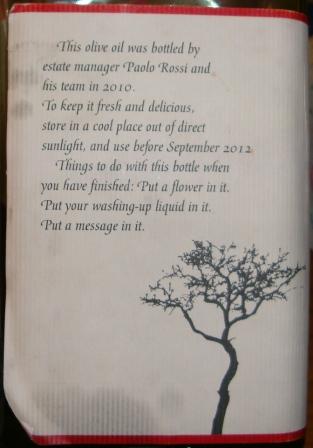 This olive oil was bottled by
estate manager Paolo Rossi and
his team in 2010.
To keep it fresh and delicious,
store in a cool place out of direct
sunlight, and use before September 2012
Things to do with this bottle when
you have finished: Put a flower in it.
Put your washing-up liquid in it.
Put a message in it.